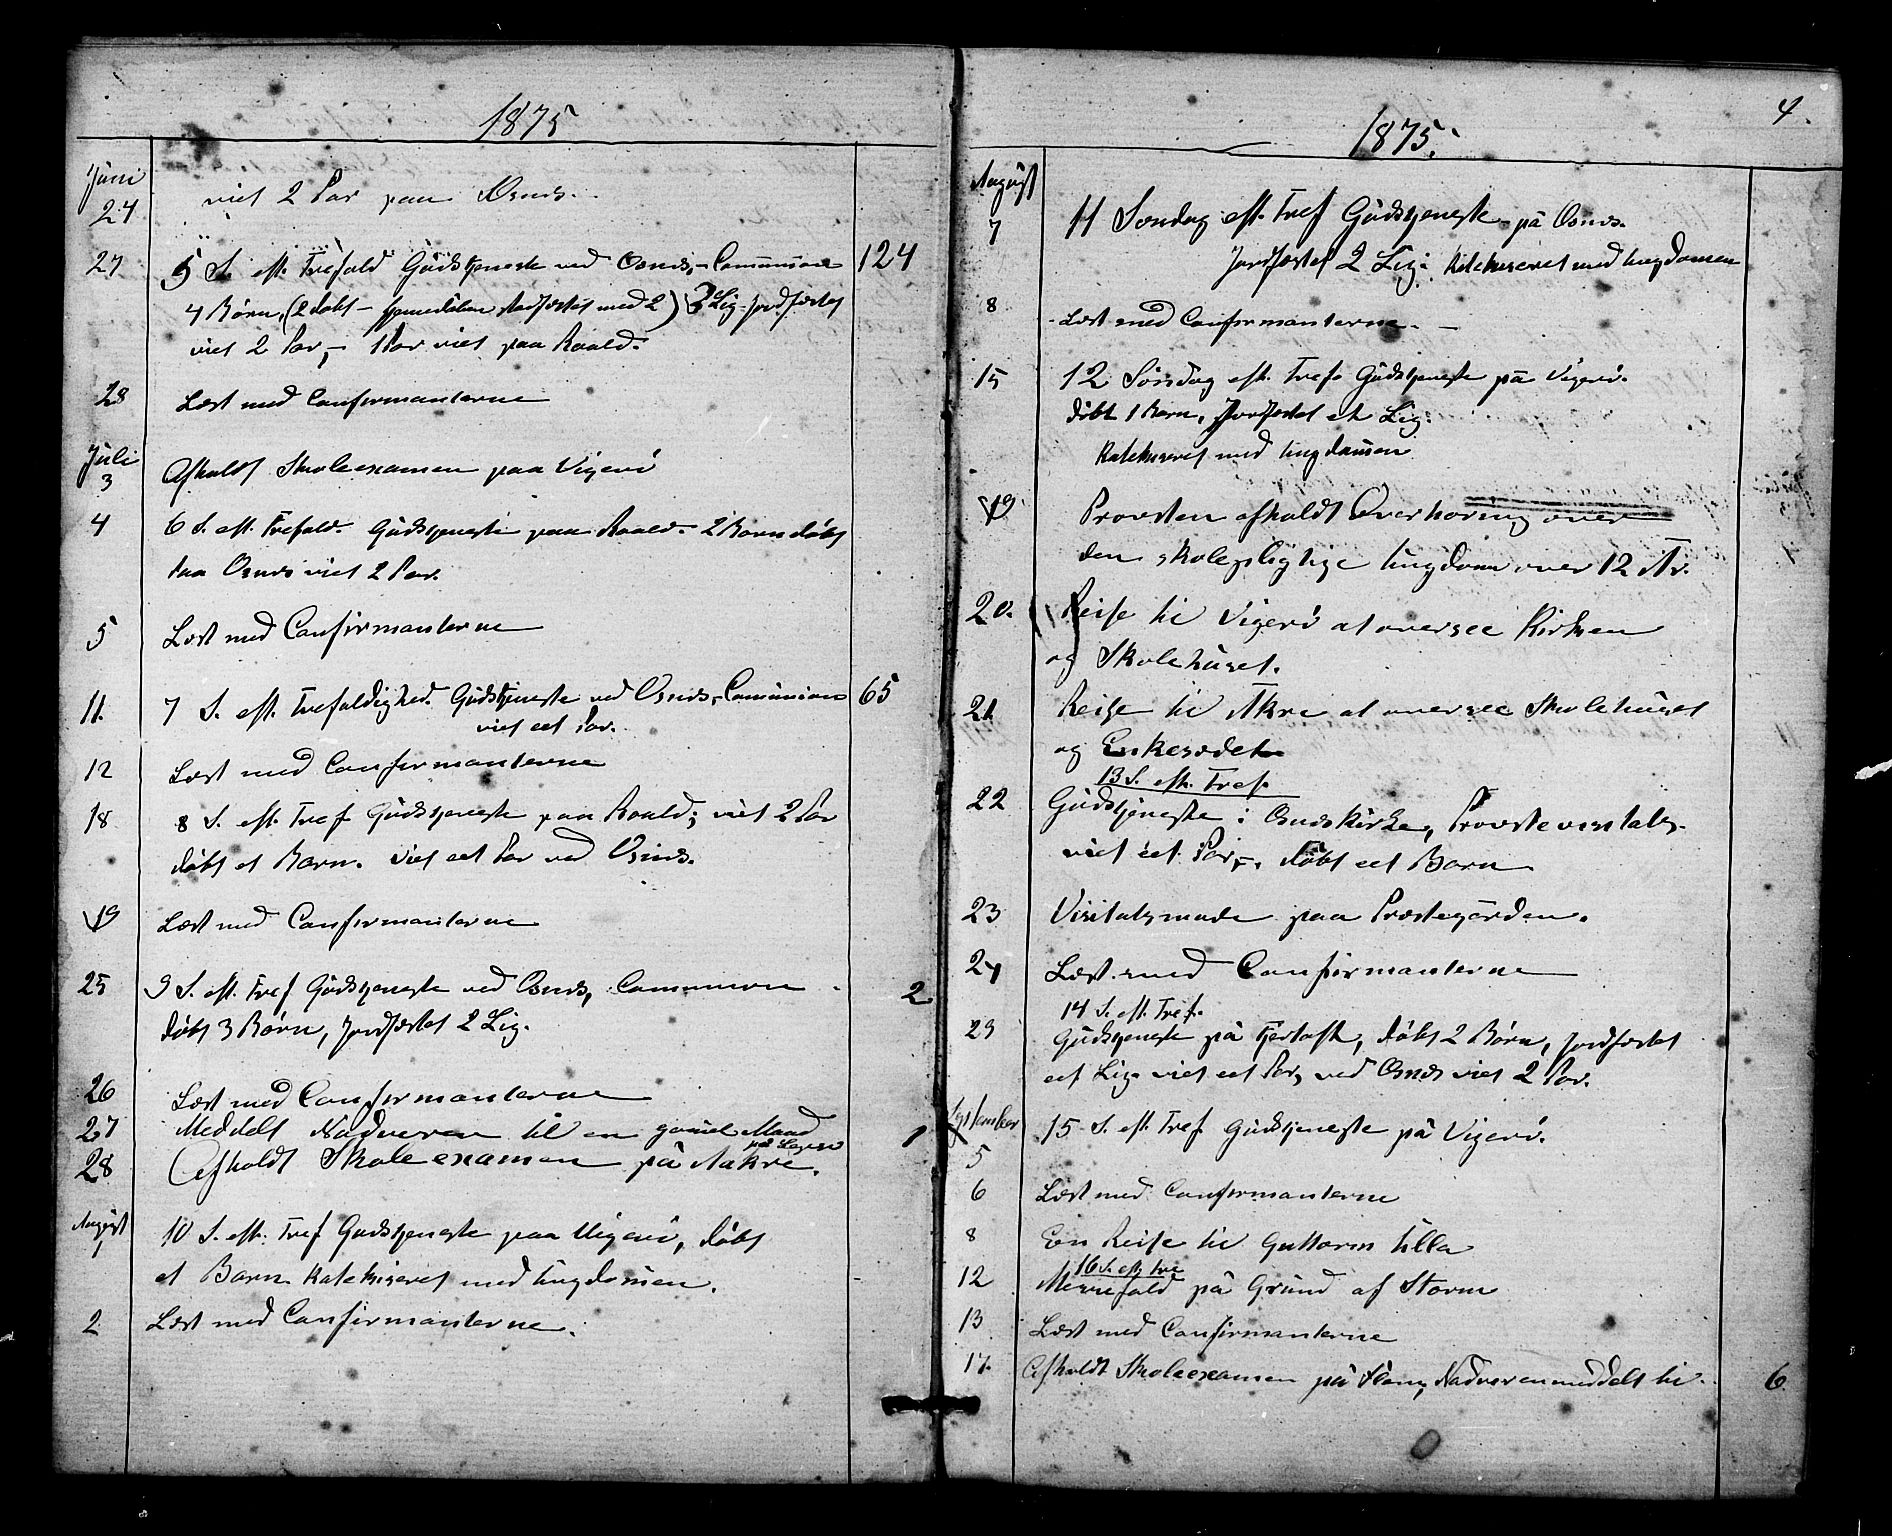 1875
Juni
24 viet 2 Par paa Osnæs.
27 5 S. eft. Trefold Gudstjeneste ved Osnæs, - Communion 124
4 Børn, (2 døbt - Hjemmedåben stadfæstet med 2) 3 Lig jordfæstet
viet 2 Par, - 1 Par viet paa Roald.
28 Læst med Confirmanterne
Juli
3 Afholdt Skoleexamen paa Vigerö
4 6 S. eft. Trefold. Gudstjeneste paa Roald - 2 Børn døbt
Paa Osnæs viet 2 Par.
5 Læst med Confirmanterne
11. 7 S. eft. Trefoldighed. Gudstjeneste ved Osnæs, Comunion 65
viet eet Par.
12 Læst med Confirmanterne
18 8 S. eft. Tref Gudstjeneste paa Roald; viet 2 Par
døbt et Barn. viet eet Par ved Osnæs.
19 Læst med Confirmanterne
25 9 S. eft. Tref Gudstjeneste ved Osnæs, Communion 2
døbt 3 Børn, jordfæstet 2 Lig.
26 Læst med Confirmanterne
27 Meddelt Nadveren til en gamel Mand 1
på
28 Afholdt Skoleexamen på Aakre.
August
1 10 S. eft. Tref Gudstjeneste paa Vigerö, døbt
et Barn. Katekiseret med Ungdomen.
2 Læst med Confirmanterne.
1875. 4.
August
7 11 Søndag eft. Tref Gudstjeneste på Osnæs.
Jordfæstet 2 Lig. Katekiseret med Ungdomen
8 Læst med Confirmanterne. -
15 12 Søndag eft. Tref. Gudstjeneste på Vigerö.
døbt 1 Barn, Jordfæstet et Lig.
Katekiseret med Ungdomen
19 Provsten afholdt Overhøring over
den skolepligtige Ungdom over 12 År.
20. Reise til Vigerö at oversee Kirken
og Skolehuset.
21. Reise til Åkre at oversee Skolehuset
og Enkesædet
13 S. eft. Tref.
22 Gudstjeneste i Osnæs Kirke, Provstevisitats.
viet eet Par, -. døbt eet Barn
23 Visitatsmøde paa Præstegården.
24 Læst med Confirmanterne
14 S. eft. Tref.
29 Gudstjeneste på Fjertoft, døbt 2 Børn, jordfæstet
eet Lig viet eet Par, ved Osnæs viet 2 Par.
September
5 15 S. eft. Tref Gudstjeneste på Vigerö.
6 Læst med Confirmanterne
8 En Reise til Guttorm Ulla
16 S. eft. Tre
12 Messefald på Grund af Storm
13 Læst med Confirmanterne
17. Afholdt Skoleexamen på Flem, Nadveren meddelt til 6